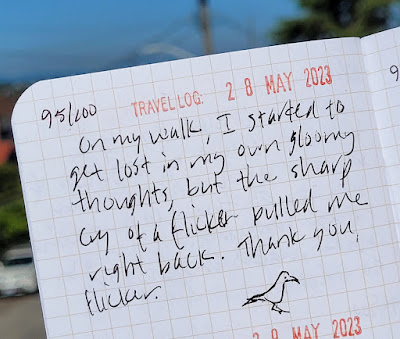 95/100
TRAVEL LOG: 28 MAY 2023
On my walk, I started to
get lost in my own gloomy
thoughts, but the sharp
cry of a flicker pulled me
right back. Thank you,
flicker.
29 MAY 2023
9